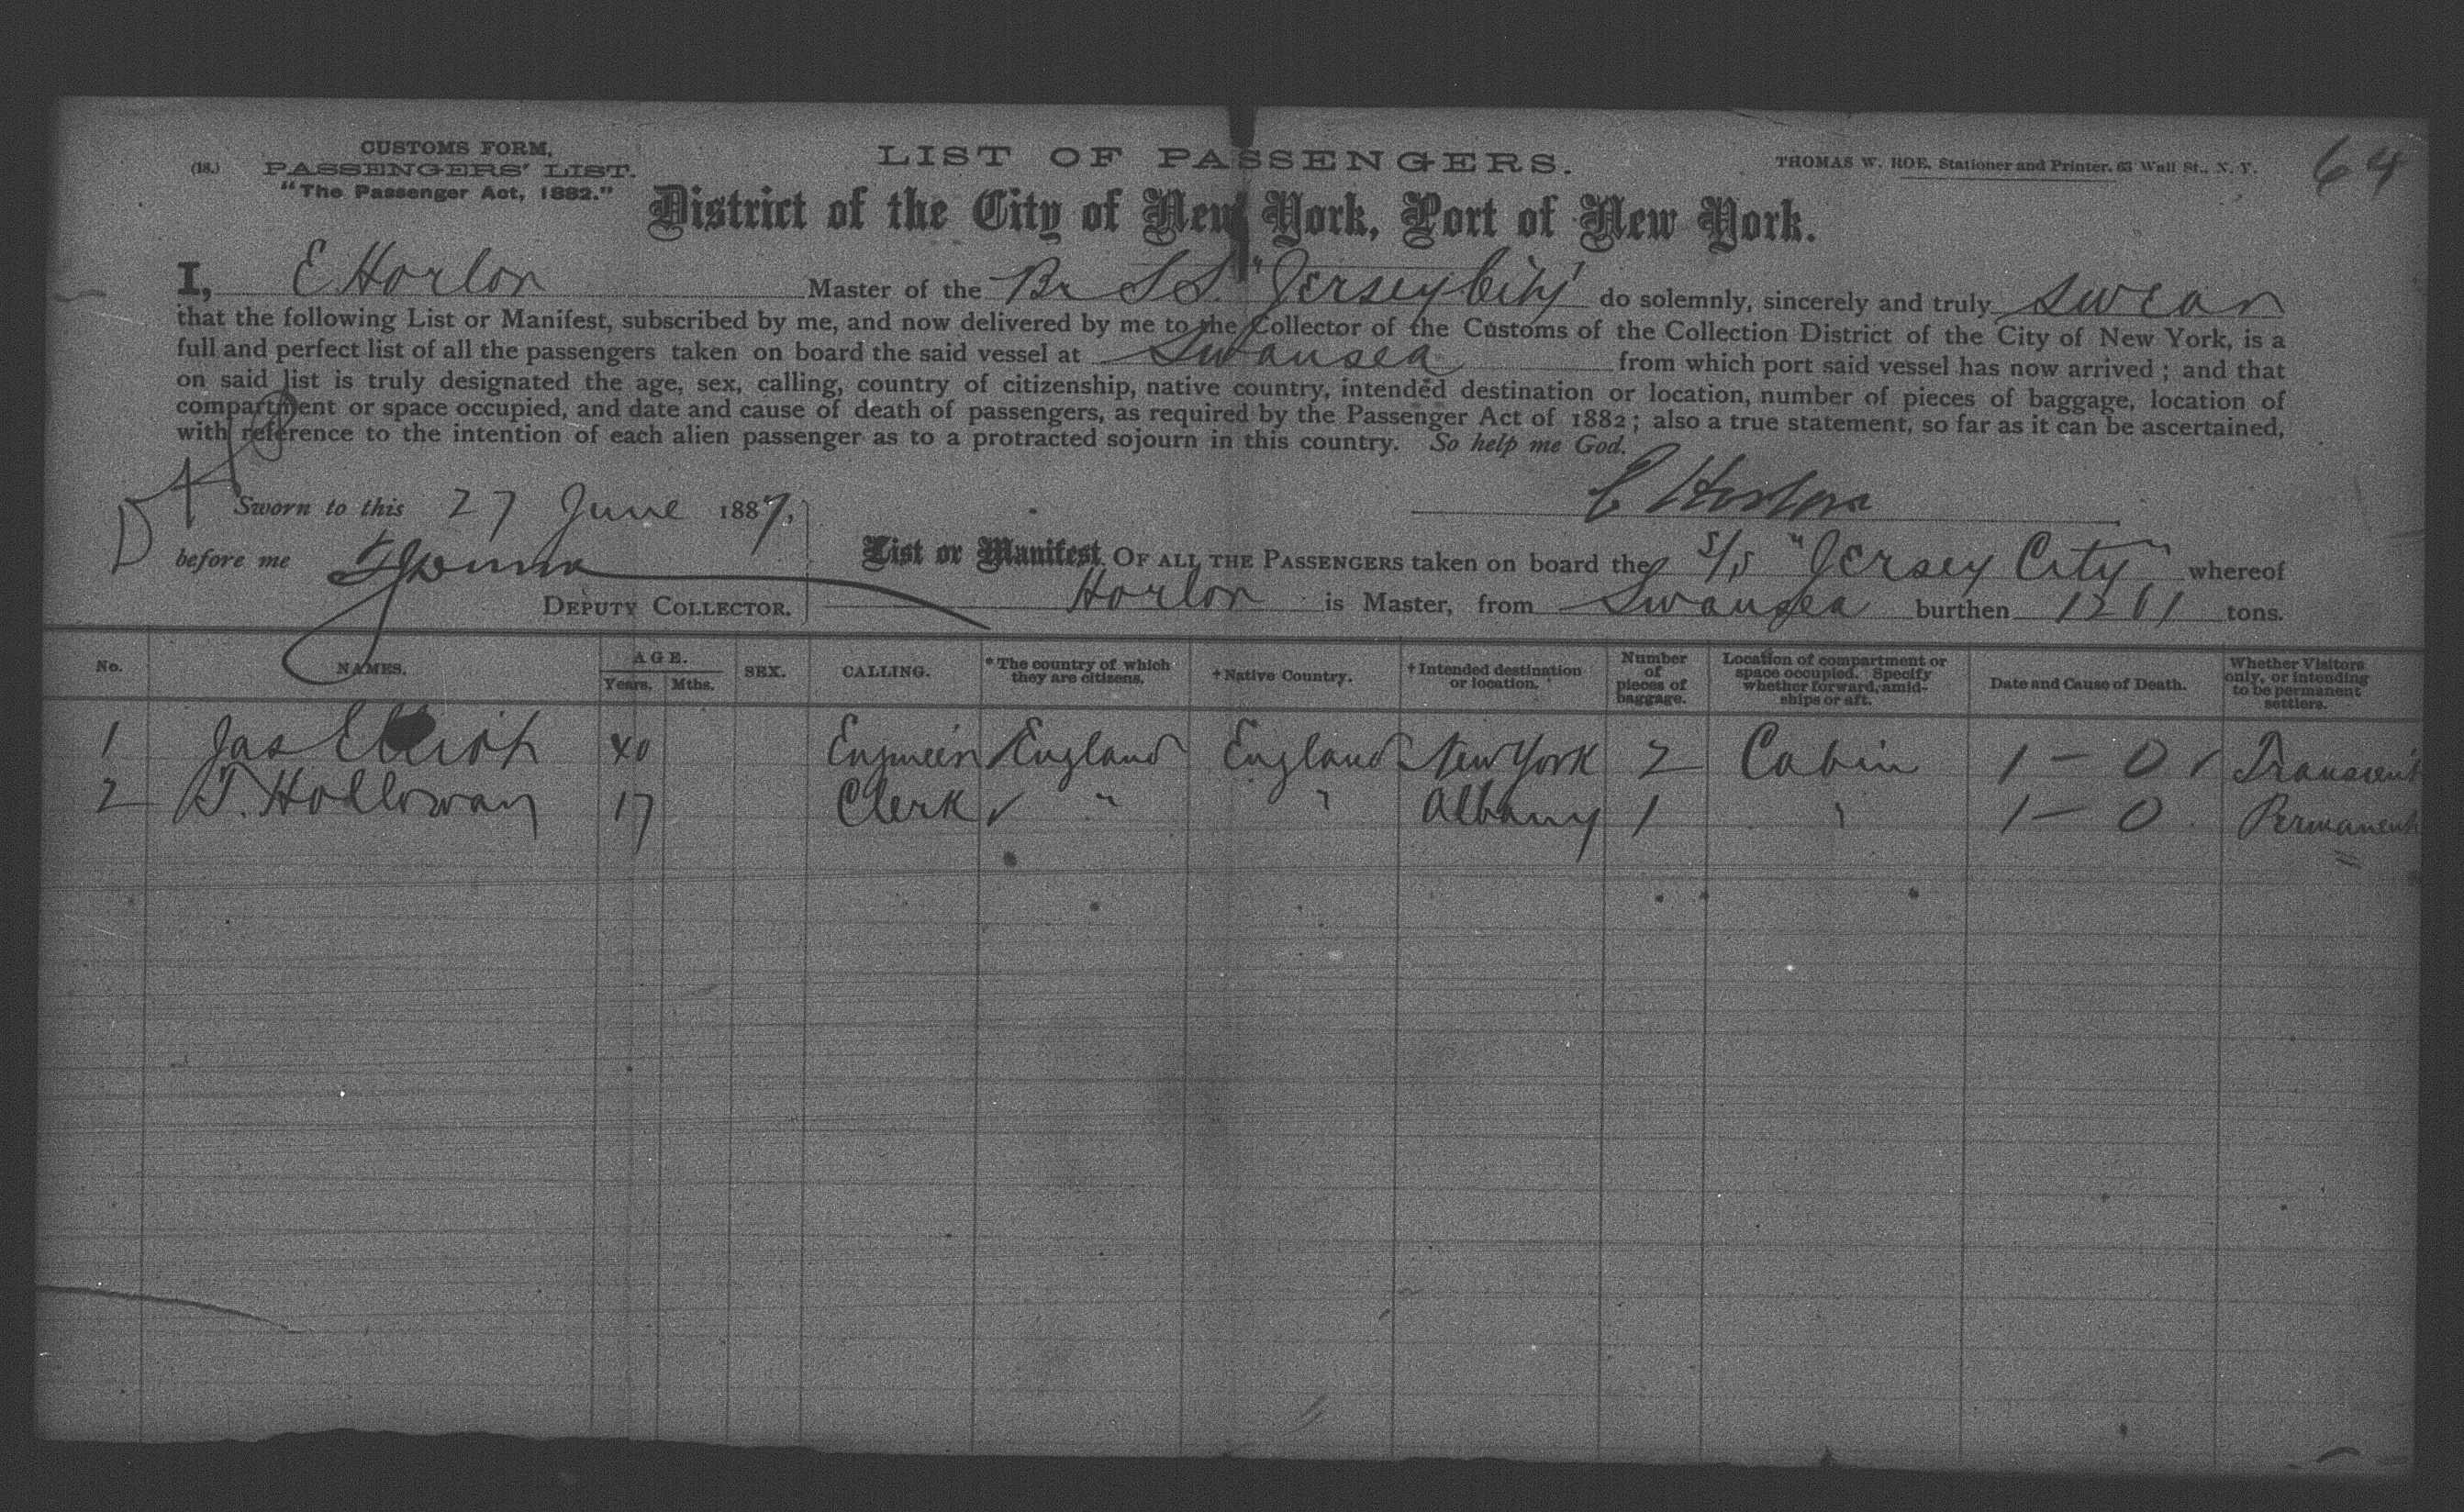 CUSTOMS FORM,
(18.) PASSENGERS' LIST.
"The Passenger Act, 1882."
LIST OF PASSENGERS.
THOMAS W. ROE, Stationer and Printer, 63 Wall St., N. Y.
64
District of the City of New York, Port of New York.
I, E Horlor Master of the Br S S. "Jersey City" do solemnly, sincerely and truly swear
that the following List or Manifest, subscribed by me, and now delivered by me to the Collector of the Customs of the Collection District of the City of New York, is a
full and perfect list of all the passengers taken on board the said vessel at Swansea from which port said vessel has now arrived ; and that
on said list is truly designated the age, sex, calling, country of citizenship, native country, intended destination or location, number of pieces of baggage, location of
compartment or space occupied, and date and cause of death of passengers, as required by the Passenger Act of 1882 ; also a true statement, so far as it can be ascertained,
with reference to the intention of each alien passenger as to a protracted sojourn in this country. So help me God.
E Horlor
Sworn to this 27 June 1887,
before me
DEPUTY COLLECTOR.
List or Manifest OF ALL THE PASSENGERS taken on board the S/S "Jersey City" whereof
Horlor is Master, from Swansea burthen 1261 tons.
No. NAMES. AGE. Years. Mths. SEX. CALLING. * The country of which they are citizens. † Native Country. † Intended destination or location. Number of pieces of baggage. Location of compartment or space occupied. Specify whether forward, amidships or aft. Date and Cause of Death. Whether Visitors only, or intending to be permanent settlers.
1 Jas Elliott 40 Engineer England England New York 2 Cabin 1 – 0 ✓ Transient
2 T. Holloway 17 Clerk ✓ " " Albany 1 " 1 – 0 Permanent